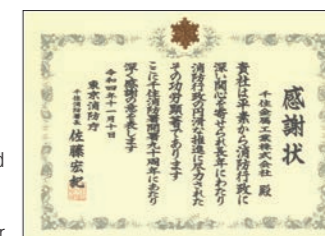 感謝状
千住金属工業株式会社 殿
貴社は平素から消防行政に
深い関心を寄せられ長年にわたり
消防行政の円滑な推進に尽力された
その功労顕著であります
ここに千住消防署開署九十周年にあたり
深く感謝の意を表します
令和四年十一月十日
東京消防庁
千住消防署長 佐藤宏紀
ed
r